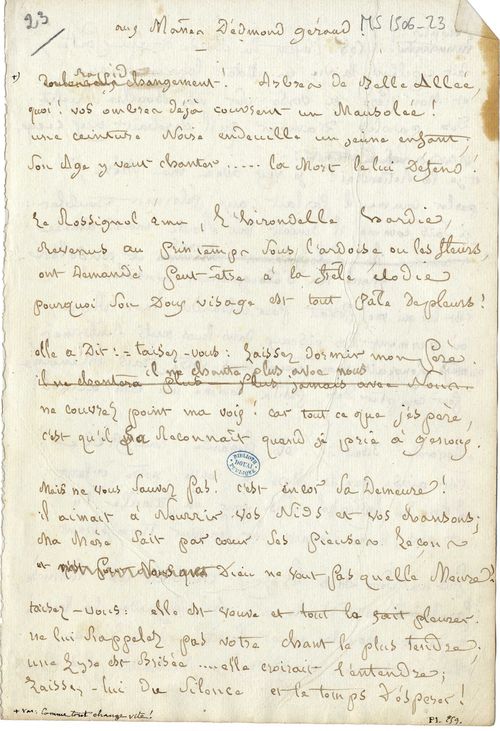 23
aux Mânes D'édmond géraud.
MS 1506-23
+) rapide changement ! Arbres de Belle Allée,
quoi ! vos ombres déjà couvrent un Mausolée !
une ceinture Noire endeuille un jeune enfant,
Son Age y veut chanter ..... la Mort le lui Défend !
Le Rossignol ému, L'hirondelle hardie,
Revenus au Printemps Sous l'ardoise ou les fleurs,
ont Demandé Peut-être à la frêle élodie,
pourquoi Son Doux visage est tout Pâle De pleurs !
elle a Dit : - taisez-vous : Laissez dormir mon Père.
il ne chante plus avec nous
il ne chantera plus Plus jamais avec Nous
ne couvrez point ma voix : car tout ce que j'espère,
c'est qu'il La Reconnaît quand je prie à genoux.
Mais ne vous Sauvez Pas ! c'est encor Sa Demeure !
il aimait à Nourrir vos Nids et vos chansons ;
Ma Mère Sait par cœur Ses Pieuses Leçons
et Dieu ne veut Pas qu'elle Meure !
taisez-vous : elle est veuve et tout la fait pleurer.
ne lui Rappelez pas votre chant le plus tendre ;
une Lyre est Brisée .... elle croirait l'entendre ;
Laissez-lui Du Silence et le temps D'espérer !
BIBLIOTH
DOUAI
PUBLIQUE
+ var : Comme tout change vite !
P1. 259.